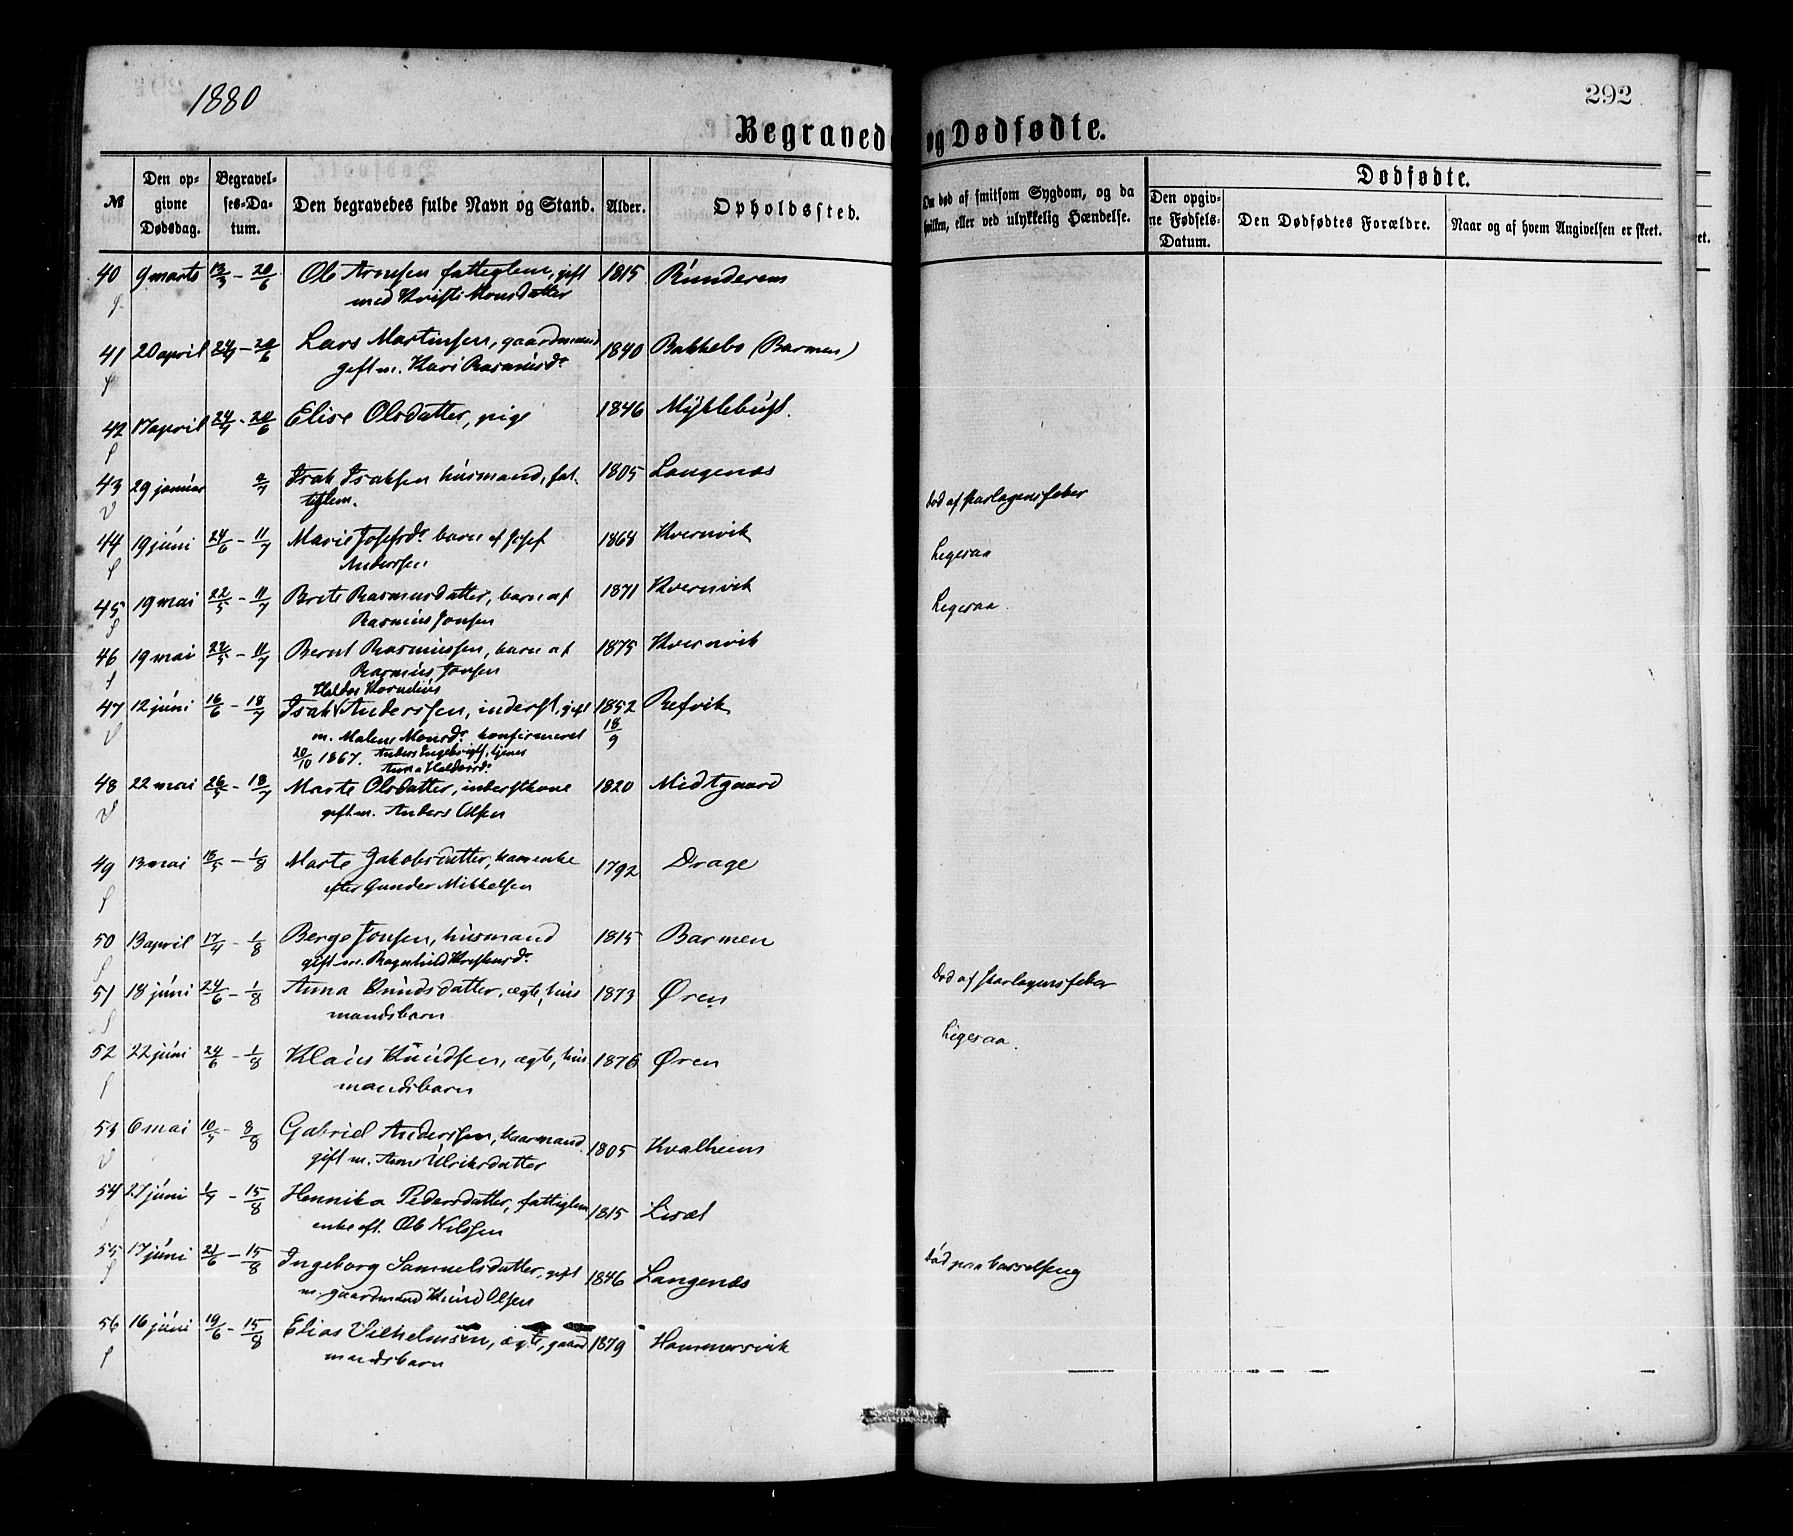 1880
292
Begravede og Dødfødte.
№ Den opgivne Dødsdag. Begravelses-Datum. Den begravedes fulde Navn og Stand. Alder. Opholdssted. Om død af smitsom Sygdom, og da hvilken, eller ved ulykkelig Hændelse. Dødfødte.
Den opgivne Fødsels-Datum. Den Dødfødtes Forældre. Naar og af hvem Angivelsen er skeet.
40 9 marts 13/3 - 20/6 Ole Arnesen fattiglem, gift 1815 Runderem
med Kristi Monsdatter
41 20 april 24/4 - 20/6 Lars Martinsen, gaardmand 1840 Bakkebø (Barmen)
gift m. Kari Rasmusdr
42 17 april 24/4 - 20/6 Elise Olsdatter, pige 1846 Myklebust.
43 29 januar 2/7 Isak Isaksen husmand, fat- 1805 Langenæs
tiglem.
død af skarlagensfeber
44 19 juni 24/6 - 11/7 Marie Josefsdr barn af Josef 1868 Kvernvik
Andersen
Ligesaa
45 19 mai 22/5 - 11/7 Brite Rasmusdatter, barn af 1871 Kvernvik
Rasmus Jonsen
Ligesaa.
46 19 mai 22/5 - 11/7 Bernt Rasmussen, barn af 1875 Kvernvik
Rasmus Jonsen
Haldor Kornelius
47 12 juni 16/6 - 18/7 Isak Anderssen, inderst, gift 1852 Refvik
m. Malene Monsdr konfirmeret 18/9
20/10 1867. Anders Ingebrigts, tjener
Anna Haldorsdr
48 22 mai 26/5 - 18/7 Marte Olsdatter, inderstkone 1820 Midtgaard
gift m. Anders Olsen
49 13 mai 18/5 - 1/8 Marte Jakobsdatter, kaarenke 1792 Drage
efter Gunder Mikkelsen
50 13 april 17/4 - 1/8 Berge Jonsen, husmand 1815 Barmen
gift m. Ragnhild Kristensdr
51 18 juni 24/6 - 1/8 Anna Knudsdatter, ægte, hus 1873 Øren
mandsbarn
Død af skarlagensfeber
52 22 juni 24/6 - 1/8 Klaus Knudsen, ægte, hus 1876 Øren
mandsbarn
Ligesaa.
53 6 mai 10/5 - 8/8 Gabriel Anderssen, kaarmand. 1805 Kvalheim
gift m. Anne Ulriksdatter
54 27 juni 1/7 - 15/8 Hennika Pedersdatter, fattiglem 1815 Lisæt
enke eft. Ole Nilssen
55 17 juni 21/6 - 15/8 Ingeborg Samuelsdatter, gift 1846 Langenæs
m. gaardmand Knud Olsen
Død paa barselseng
56 16 juni 19/6 - 15/8 Elias Vilhelmsen, ægte, gaard 1879 Hammersvik
mandsbarn